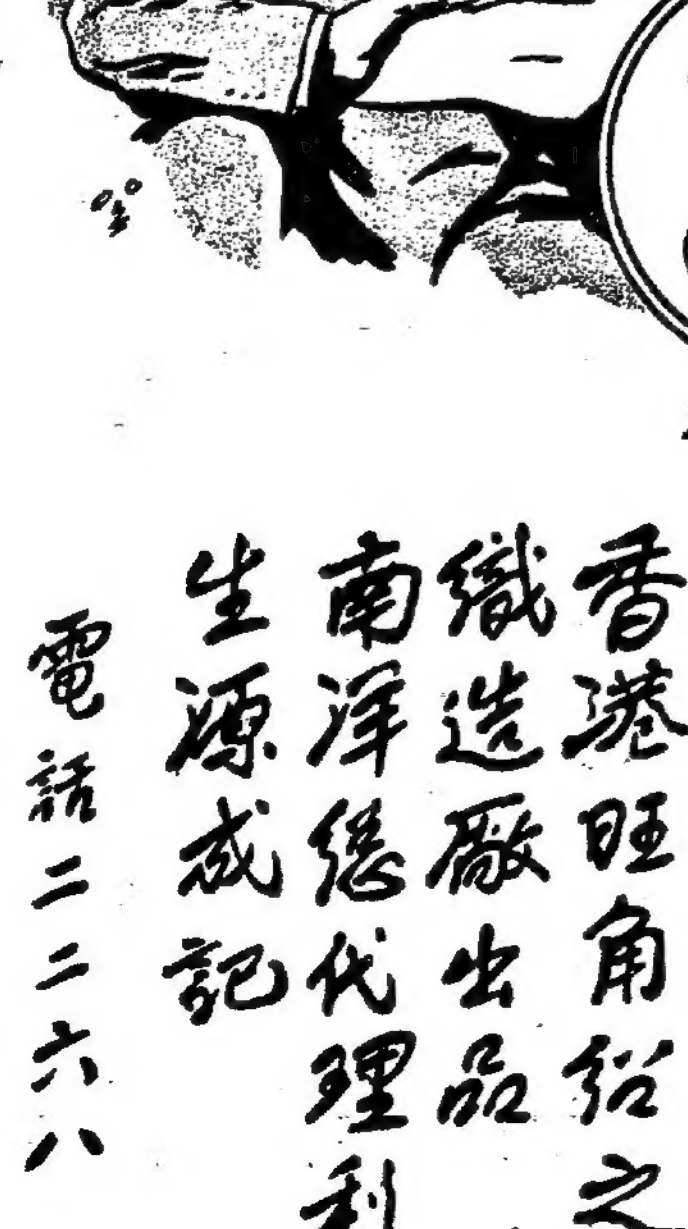 香港旺角紹之
織造廠出品
南洋總代理利
生源成記
電話二二六八